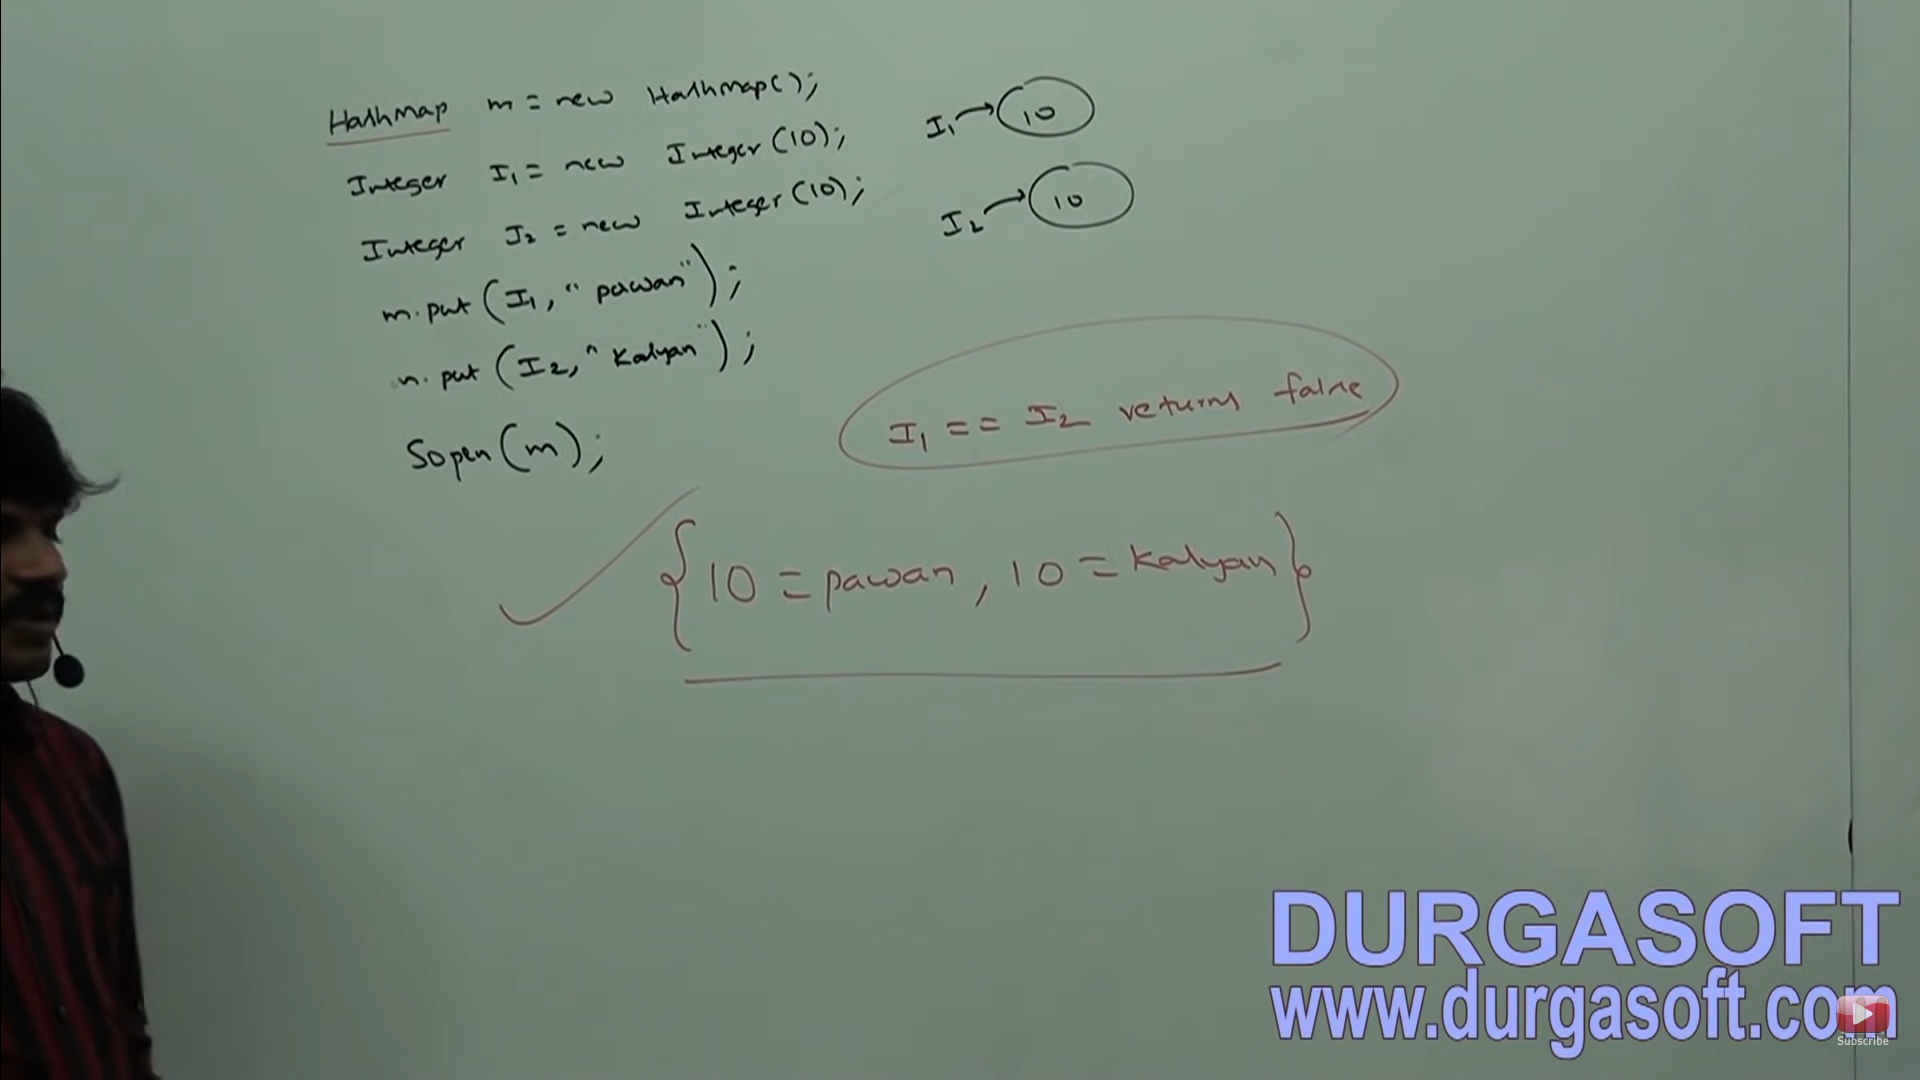 HashMap m = new HashMap();
Integer I1 = new Integer(10);
Integer I2 = new Integer(10);
m.put(I1, "pawan");
m.put(I2, "Kalyan");
Sopln(m);
I1 → 10
I2 → 10
I1 == I2 returns false
{10 = pawan, 10 = Kalyan}
DURGASOFT
www.durgasoft.com
Subscribe